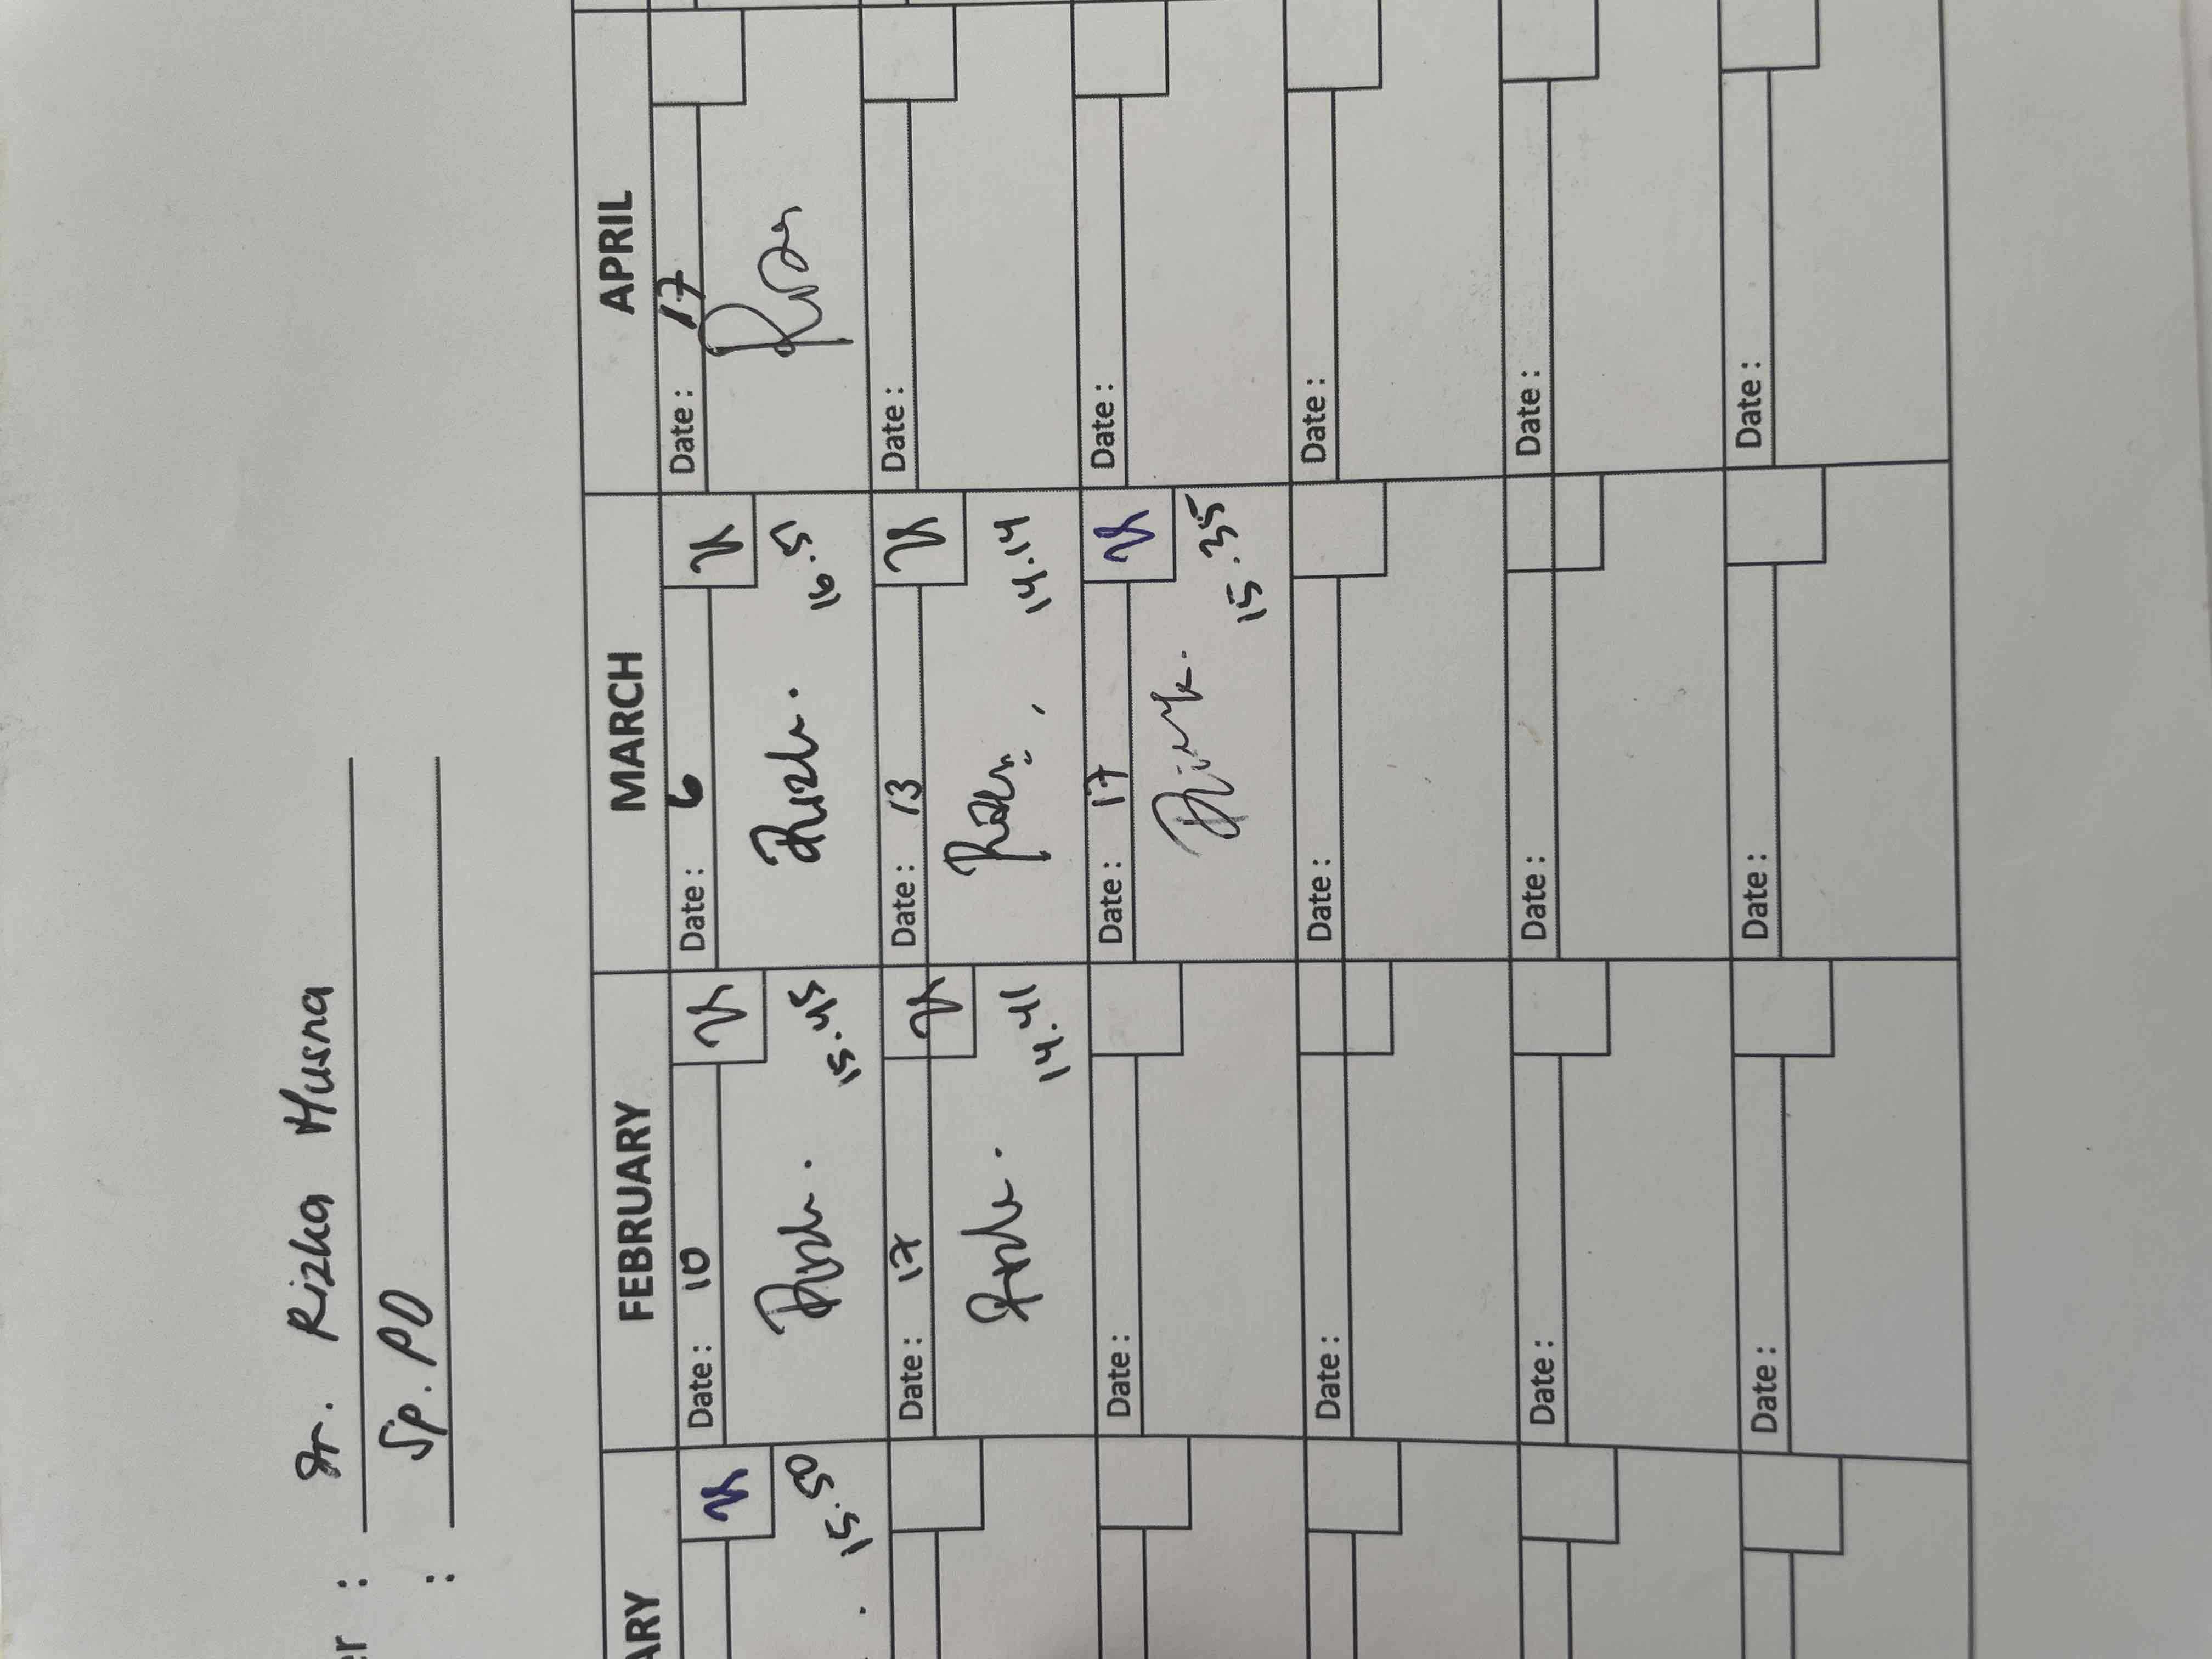 er : dr. Rizka Husna
: Sp. PD
ARY FEBRUARY MARCH APRIL
Date : 10 Date : 6 Date : 17
15.50 15.45 16.51
Date : 17 Date : 13 Date :
14.41 14.14
Date : Date : 17 Date :
15.35
Date : Date : Date :
Date : Date : Date :
Date : Date : Date :